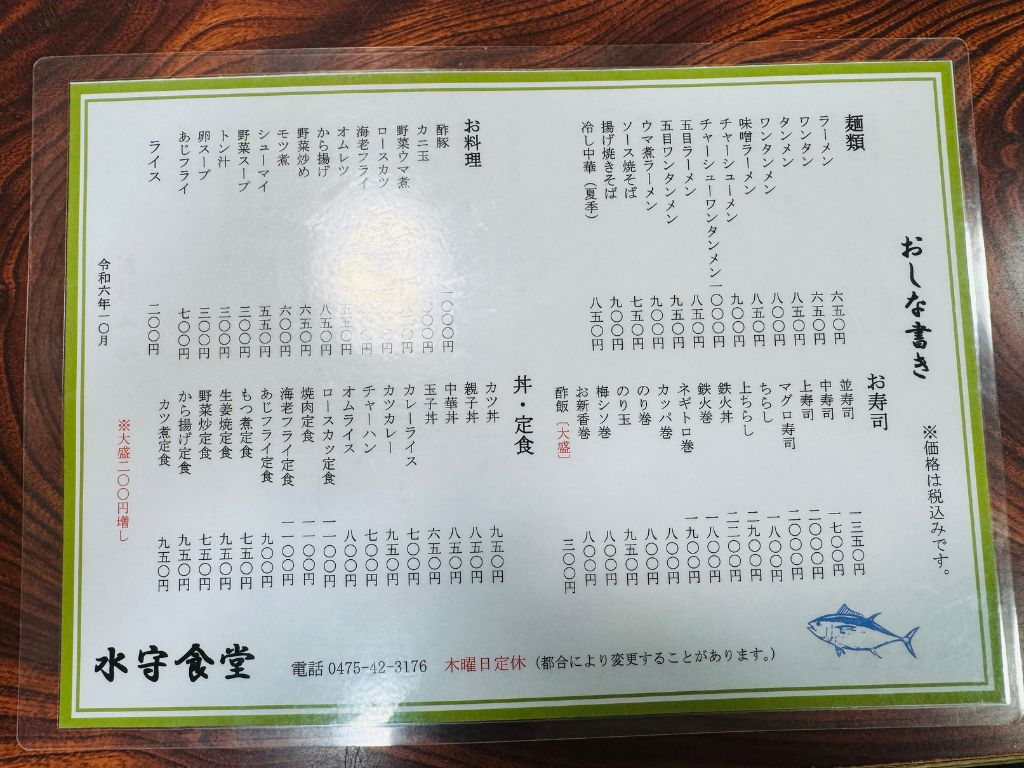 おしな書き
※価格は税込みです。
麺類
ラーメン 六五〇円
ワンタン 六五〇円
タンメン 八五〇円
ワンタンメン 八〇〇円
味噌ラーメン 八五〇円
チャーシューメン 九〇〇円
チャーシューワンタンメン 一〇〇〇円
五目ラーメン 八五〇円
五目ワンタンメン 九五〇円
ウマ煮ラーメン 九〇〇円
ソース焼そば 七五〇円
揚げ焼きそば 九〇〇円
冷し中華(夏季) 八五〇円
お料理
酢豚 一〇〇〇円
カニ玉
野菜ウマ煮
ロースカツ
海老フライ
オムレツ 五五〇円
から揚げ 八五〇円
野菜炒め 六五〇円
モツ煮 六〇〇円
シューマイ 五五〇円
野菜スープ 三〇〇円
トン汁 三〇〇円
卵スープ 三〇〇円
あじフライ 七〇〇円
ライス 二〇〇円
令和六年一〇月
お寿司
並寿司 一三五〇円
中寿司 一七〇〇円
上寿司 二〇〇〇円
マグロ寿司 二〇〇〇円
ちらし 一八〇〇円
上ちらし 二九〇〇円
鉄火丼 二二〇〇円
鉄火巻 一八〇〇円
ネギトロ巻 一九〇〇円
カッパ巻 八〇〇円
のり巻 八〇〇円
のり玉 九五〇円
梅シソ巻 八〇〇円
お新香巻 八〇〇円
酢飯[大盛] 三〇〇円
丼・定食
カツ丼 九五〇円
親子丼 八五〇円
中華丼 八五〇円
玉子丼 六五〇円
カレーライス 七〇〇円
カツカレー 九五〇円
チャーハン 七〇〇円
オムライス 八〇〇円
ロースカツ定食 一一〇〇円
焼肉定食 一一〇〇円
海老フライ定食 一一〇〇円
あじフライ定食 九〇〇円
もつ煮定食 七五〇円
生姜焼定食 九五〇円
野菜炒定食 七五〇円
から揚げ定食 九五〇円
カツ煮定食 九五〇円
※大盛二〇〇円増し
水守食堂
電話 0475-42-3176 木曜日定休 (都合により変更することがあります。)